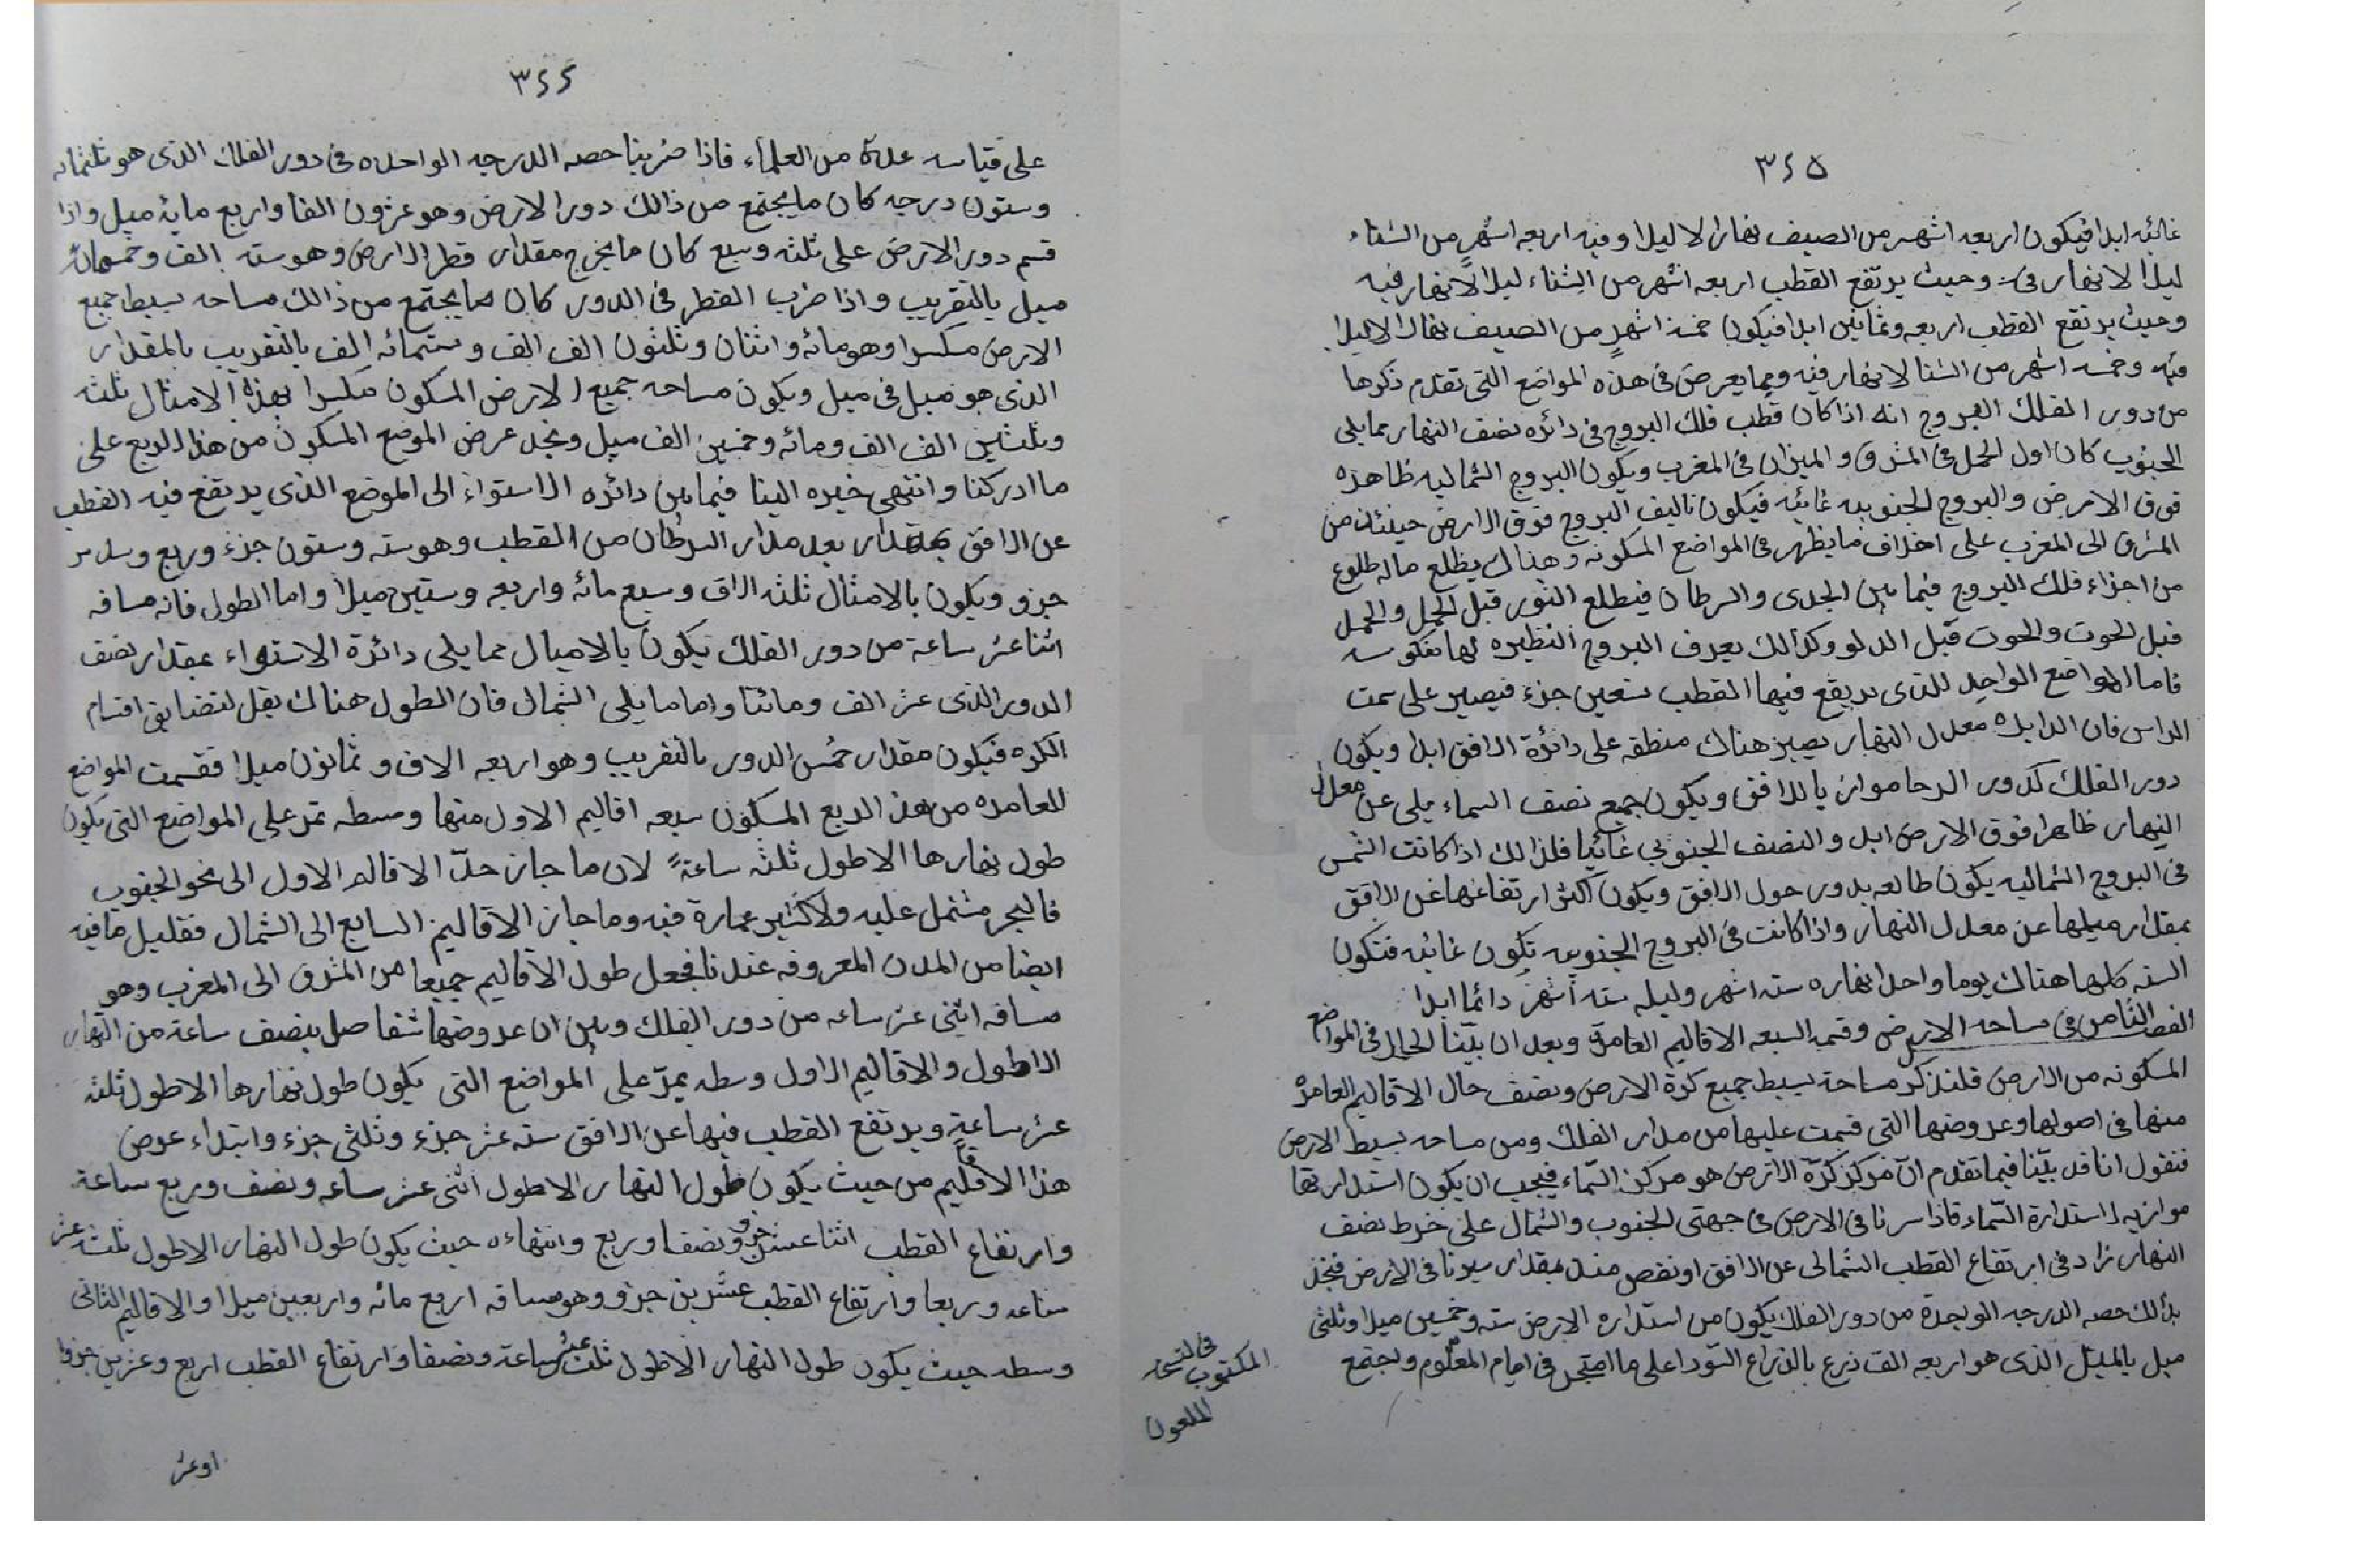 ٣٢٥
غائبه ابدا فيكون اربعه اشهر من الصيف نهارا لا ليلا وفيه اربعه اشهر من الشتاء
ليلا لا نهار فى وحيث يرتفع القطب اربعه اشهر من الشتاء ليلا لا نهار فيه
وحيث يرتفع القطب اربعه وثمانين ابدا فيكون خمسة اشهر من الصيف نهارا لا ليلا
فيه وخمسه اشهر من الشتا لا نهار فيه ومما يعرض فى هذه المواضع التى تقدم ذكرها
من دور الفلك البروج انه اذا كان قطب فلك البروج فى دائره نصف النهار مما يلى
الجنوب كان اول الحمل فى المشرق والميزان فى المغرب ويكون البروج الشماليه ظاهره
فوق الارض والبروج الجنوبيه غائبه فيكون تاليف البروج فوق الارض حينئذ من
المشرق الى المغرب على اخلاف ما يظهر فى المواضع المسكونه وهناك يطلع ماله طلوع
من اجزاء فلك البروج فيما بين الجدى والسرطان فيطلع الثور قبل الحمل والحمل
قبل الحوت والحوت قبل الدلو وكذالك يعرف البروج النظيره لها منكوسه
فاما المواضع الواحد للذى يرتفع فيها القطب تسعين جزء فيصير على سمت
الراس فان الدايره معدل النهار يصير هناك منطقه على دائرة الافق ابدا ويكون
دور الفلك كدور الرحا موازيا للافق ويكون جميع نصف السماء يلى عن معدل
النهار ظاهرا فوق الارض ابد والنصف الجنوبي غائبا فلذالك اذا كانت الشمس
فى البروج الشماليه يكون طالعه يدور حول الافق ويكون اكثر ارتفاعها عن الافق
بمقدار ميلها عن معدل النهار واذا كانت فى البروج الجنوبيه تكون غائبه فتكون
السنه كلها هناك يوما واحدا نهاره سته اشهر وليله سته أشهر دائما ابدا
الفصل الثامن فى مساحه الارض وقسمه السبعه الاقاليم العامرة وبعد ان بيّنا الحال فى المواضع
المسكونه من الارض فلنذكر مساحة بسيط جميع كرة الارض ونصف حال الاقاليم العامره
منها فى اصولها وعروضها التى قسمت عليها من مدار الفلك ومن مساحه بسيط الارض
فنقول انا قد بيّنا فيما تقدم انّ مركز كرّة الارض هو مركز السّماء فيجب ان يكون استدارتها
موازيه لاستدارة السّماء فاذا سرنا فى الارض فى جهتى الجنوب والشمال على خوط نصف
النهار زاد فى ارتفاع القطب الشمالى عن الافق او نقص منه بمقدار سيرنا فى الارض فنجد
بذالك حصه الدرجه الوبحدة من دور الفلك يكون من استداره الارض سته وخمسين ميلا وثلثى
ميل بالميل الذى هو اربعه الف ذرع بالذراع السّودا على ما امتحن فى ايام المعلوم وبجتمع
فى النسخه
المكتوب
الملعون
٣٢٤
على قياسه عدة من العلماء فاذا ضربنا حصه الدرجه الواحده فى دور الفلك الذى هو ثلثمائه
وستون درجه كان ما يجتمع من ذالك دور الارض وهو عشرون الفا واربع مايه ميل واذا
قسم دور الارض على ثلثه وسبع كان ما يخرج مقدار قطر الارض وهو سته الف وخمسمائه
ميل بالتقريب واذا ضرب القطر فى الدور كان ما يجتمع من ذالك مساحه بسيط جميع
الارض مكسرا وهو مائه واثنان وثلثون الف الف وستمائه الف بالتقريب بالمقدار
الذى هو ميل فى ميل ويكون مساحه جميع الارض المسكون مكسرا بهذه الامثال ثلثه
وثلثين الف الف ومائه وخمسين الف ميل ونجد عرض الموضع المسكون من هذا الربع على
ما ادركنا وانتهى خبره الينا فيما بين دائره الاستواء الى الموضع الذى يرتفع فيه القطب
عن الافق بمقدار بعد مدار السرطان من القطب وهو سته وستون جزء وربع وسدس
جزو ويكون بالامثال ثلثه الاف وسبع مائه واربعه وستين ميلا واما الطول فانه مسافه
اثنا عشر ساعة من دور الفلك يكون بالاميال مما يلى دائرة الاستواء بمقدار نصف
الدور الذى عشر الف ومائتا واما ما يلى الشمال فان الطول هناك يقل لتضايق اقسام
الكره فيكون مقدار خمس الدور بالتقريب وهو اربعه الاف وثمانون ميلا فقسمت المواضع
العامره من هذ الربع المسكون سبعه اقاليم الاول منها وسطه تمر على المواضع التى يكون
طول نهارها الاطول ثلثه ساعةً لان ما جاز حدّ الاقاليم الاول الى نحو الجنوب
فالبحر مشتمل عليه ولا كثير عمارة فيه وما جاز الاقاليم السابع الى الشمال فقليل ما فيه
ايضا من المدن المعروفه عندنا فجعل طول الاقاليم جميعا من المشرق الى المغرب وهو
مسافه اثنى عشر ساعه من دور الفلك وبين ان عروضها تتفاصل بنصف ساعة من النهار
الاطول والاقاليم الاول وسطه يمرّ على المواضع التى يكون طول نهارها الاطول ثلثه
عشر ساعةٍ ويرتفع القطب فيها عن الافق سته عشر جزء وثلثى جزء وابتداء عرض
هذا الاقليم من حيث يكون طول النهار الاطول اثنى عشر ساعه ونصف وربع ساعة
وارتفاع القطب اثنا عشر جزو ونصفا وربع وانتهاءه حيث يكون طول النهار الاطول ثلثه عشر
ساعه وربعا وارتفاع القطب عشرين جزو وهو مسافه اربع مائه واربعين ميلا والاقاليم الثانى
وسطه حيث يكون طول النهار الاطول ثلث عشر ساعة ونصفا وارتفاع القطب اربع وعشرين جزوا
اوعشر